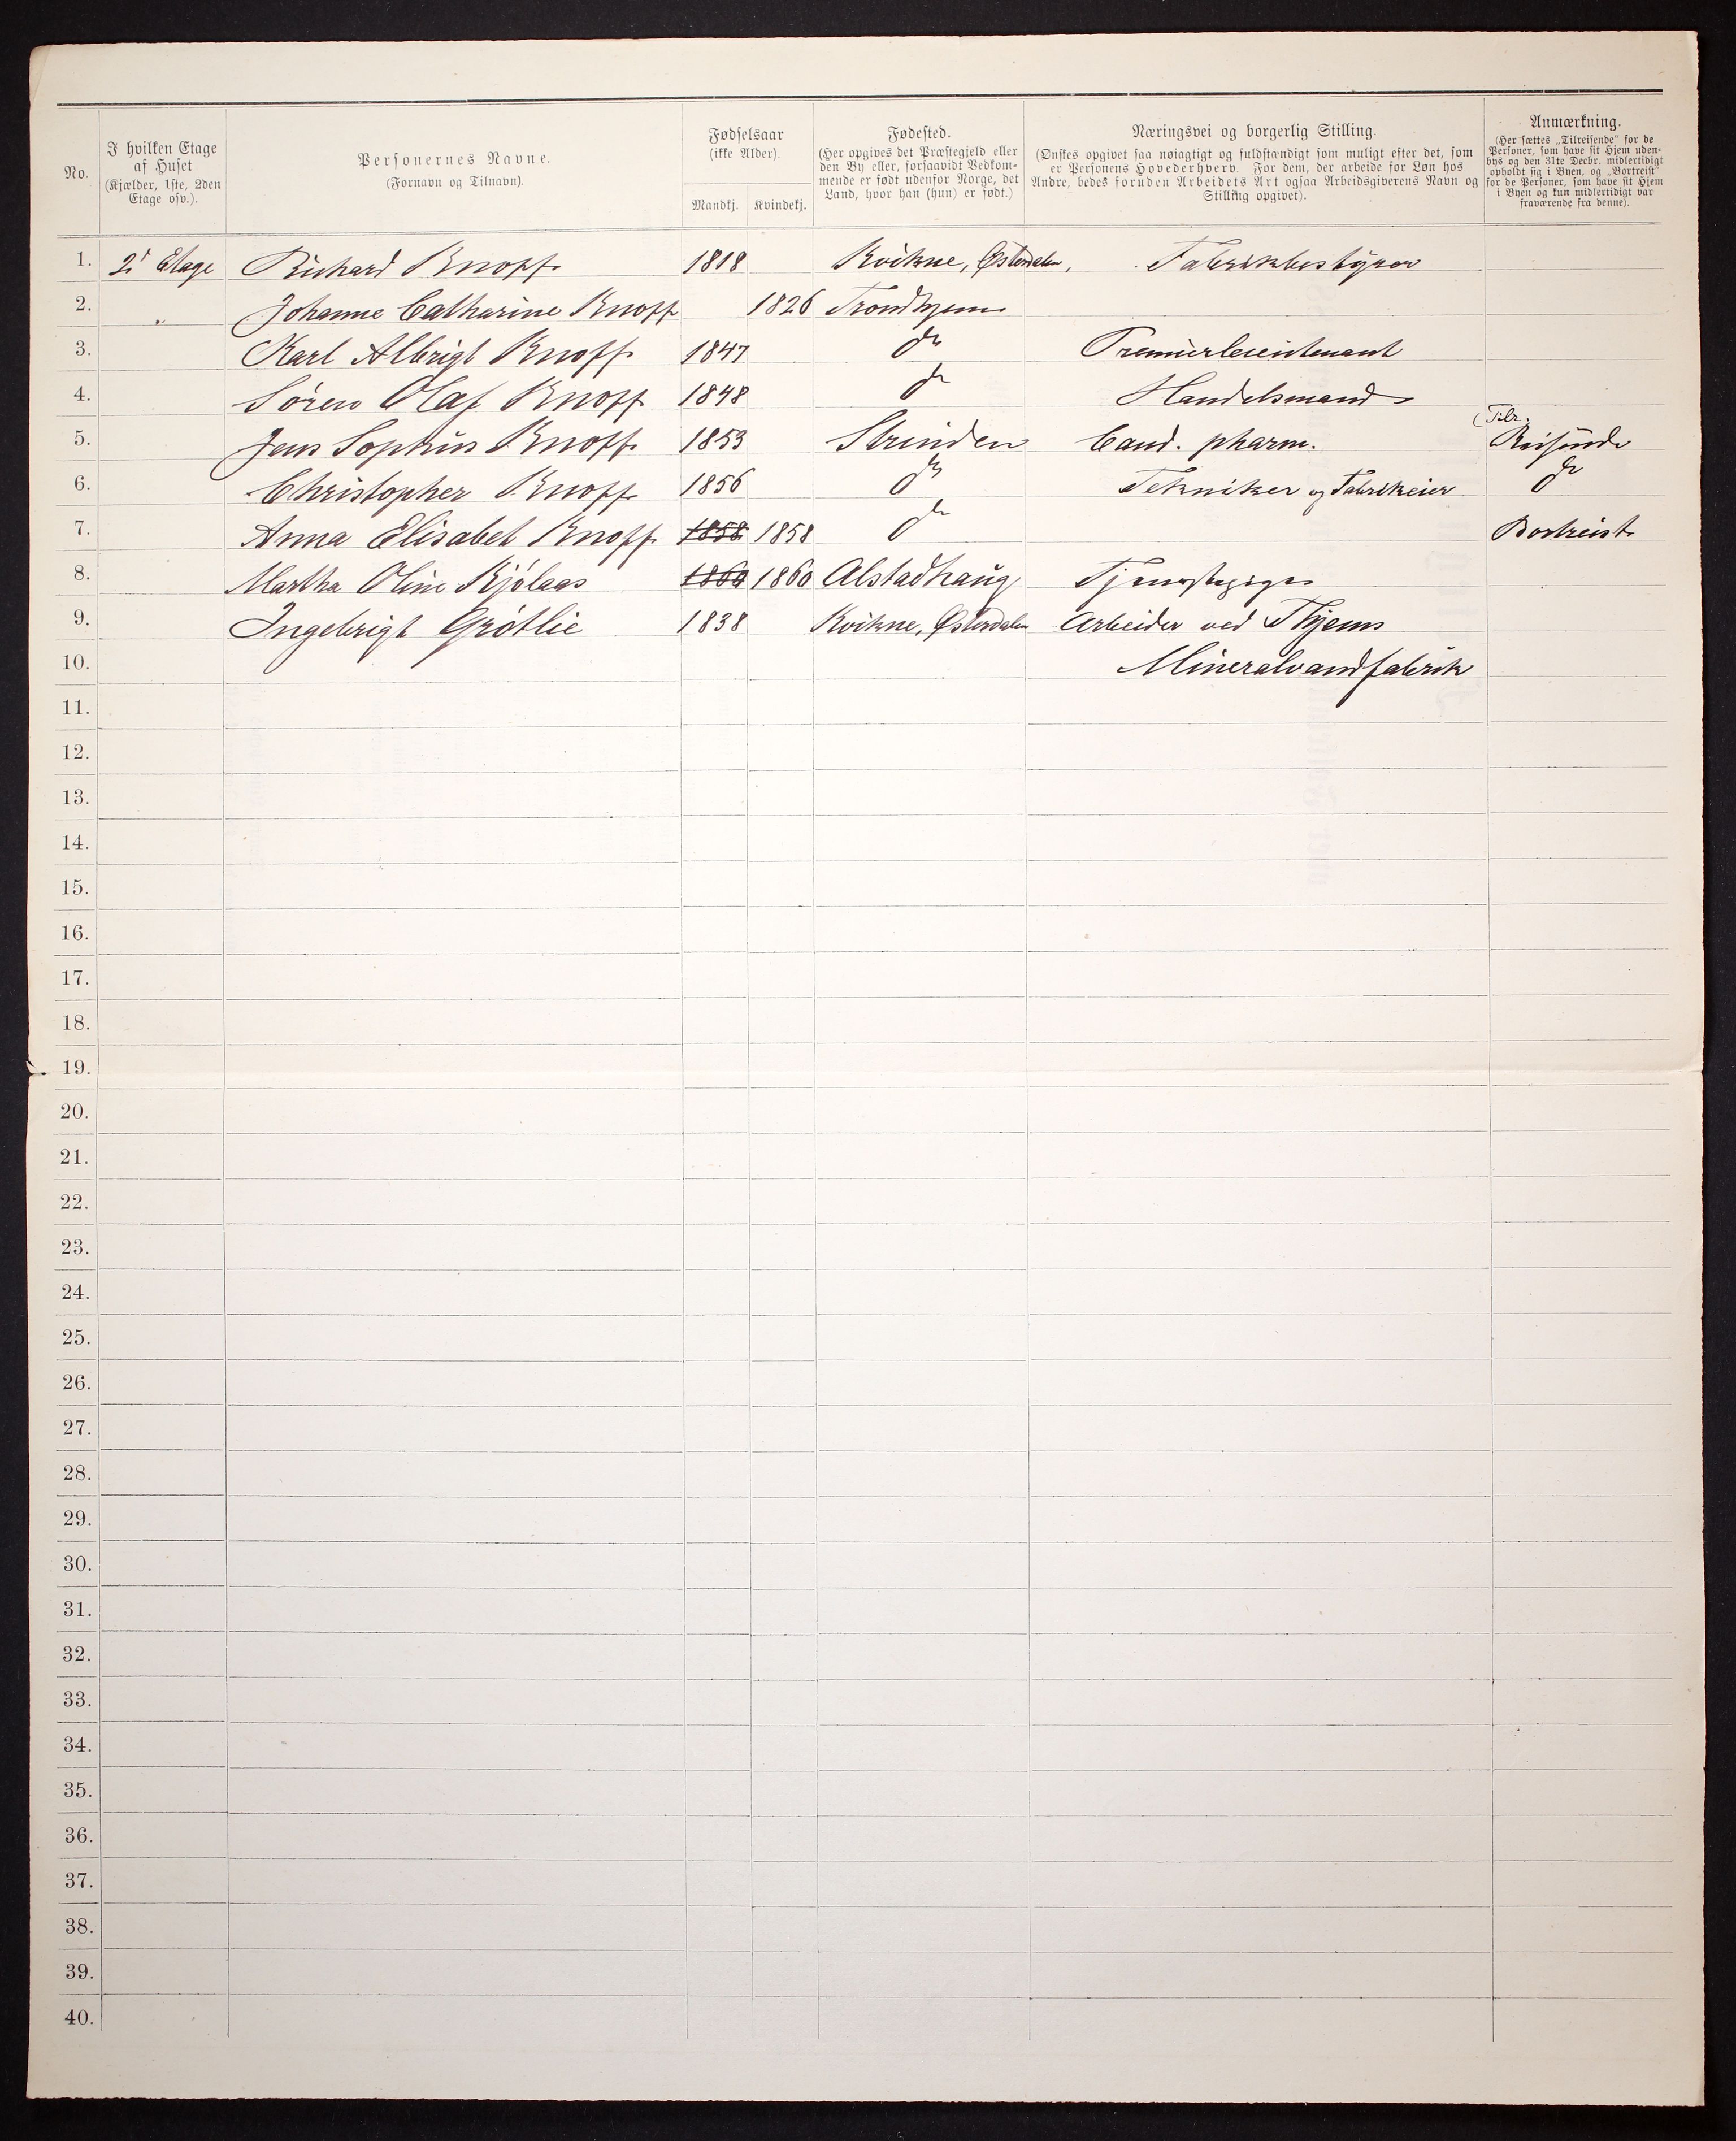 No.
I hvilken Etage
af Huset
(Kjælder, 1ste, 2den
Etage osv.).
Personernes Navne.
(Fornavn og Tilnavn).
Fødselsaar
(ikke Alder).
Mandkj. Kvindekj.
Fødested.
(Her opgives det Præstegjeld eller
den By eller, forsaavidt Vedkom-
mende er født udenfor Norge, det
Land, hvor han (hun) er født.)
Næringsvei og borgerlig Stilling.
(Ønskes opgivet saa nøiagtigt og fuldstændigt som muligt efter det, som
er Personens Hovederhverv. For dem, der arbeide for Løn hos
Andre, bedes foruden Arbeidets Art ogsaa Arbeidsgiverens Navn og
Stilling opgivet).
Anmærkning.
(Her sættes „Tilreisende" for de
Personer, som have sit Hjem uden-
bys og den 31te Decbr. midlertidigt
opholdt sig i Byen, og „Bortreist"
for de Personer, som have sit Hjem
i Byen og kun midlertidigt var
fraværende fra denne).
1. 2d Etage Richard Knoff 1818 Kvikne, Østerdalen, Fabrikbestyrer
2. " Johanne Catharine Knoff 1826 Trondhjem
3. Karl Albrigt Knoff 1847 do Premierleieutenant
4. Søren Olaf Knoff 1848 do Handelsmand
5. Jens Sophus Knoff 1853 Strinden Cand. pharm. (Tilr. Reisende
6. Christopher Knoff 1856 do Tekniker og Fabrikeier do
7. Anna Elisabet Knoff 1858 1858 do Bortreist
8. Martha Oline Kjølaas 1860 1860 Alstadhaug Tjenestepige
9. Ingebrigt Grøtlie 1838 Kvikne, Østerdalen Arbeider ved Thjems
10. Mineralvandfabrik
11.
12.
13.
14.
15.
16.
17.
18.
19.
20.
21.
22.
23.
24.
25.
26.
27.
28.
29.
30.
31.
32.
33.
34.
35.
36.
37.
38.
39.
40.